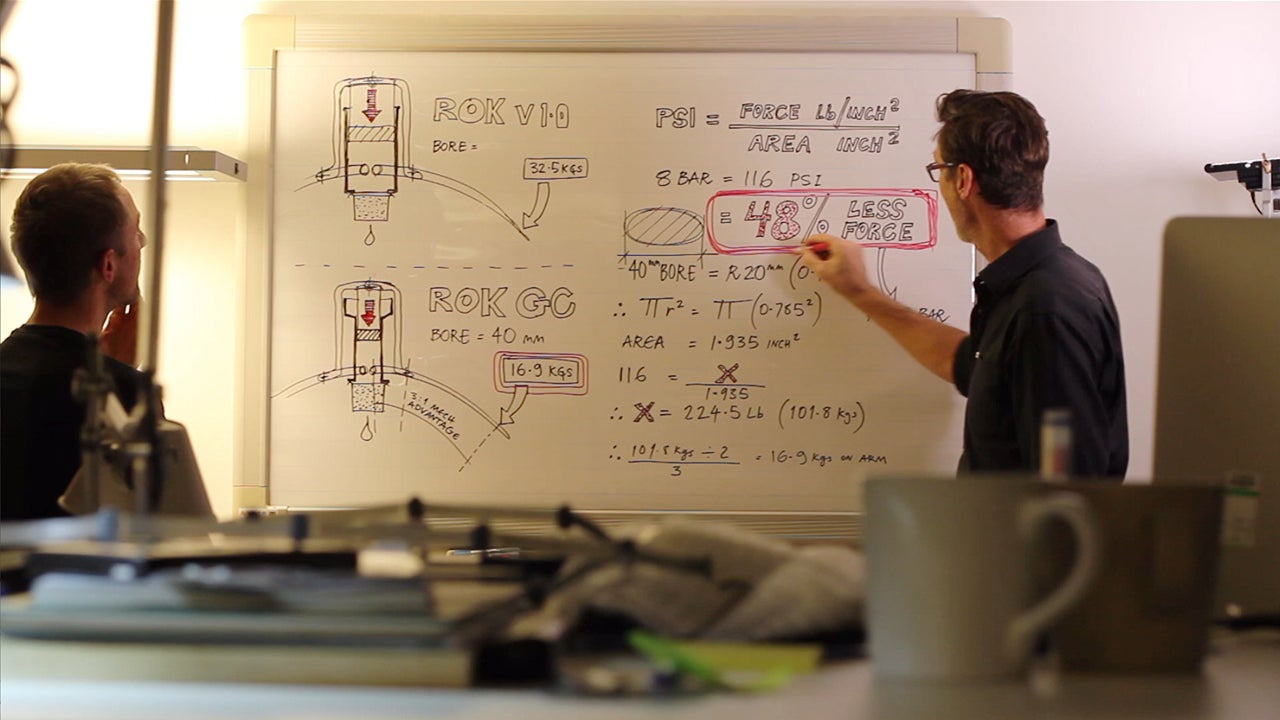 ROK V1.0
BORE =
32.5 KGS
ROK GC
BORE = 40 mm
16.9 KGS
3:1 MECH
ADVANTAGE
PSI = FORCE Lb/INCH²
AREA INCH²
8 BAR = 116 PSI
= 48% LESS
FORCE
40mm BORE = R 20mm (0.
∴ πr² = π (0.785²)
BAR
AREA = 1.935 INCH²
116 = X
1.935
∴ X = 224.5 Lb (101.8 Kgs)
∴ 101.8 Kgs ÷ 2 = 16.9 Kgs ON ARM
3